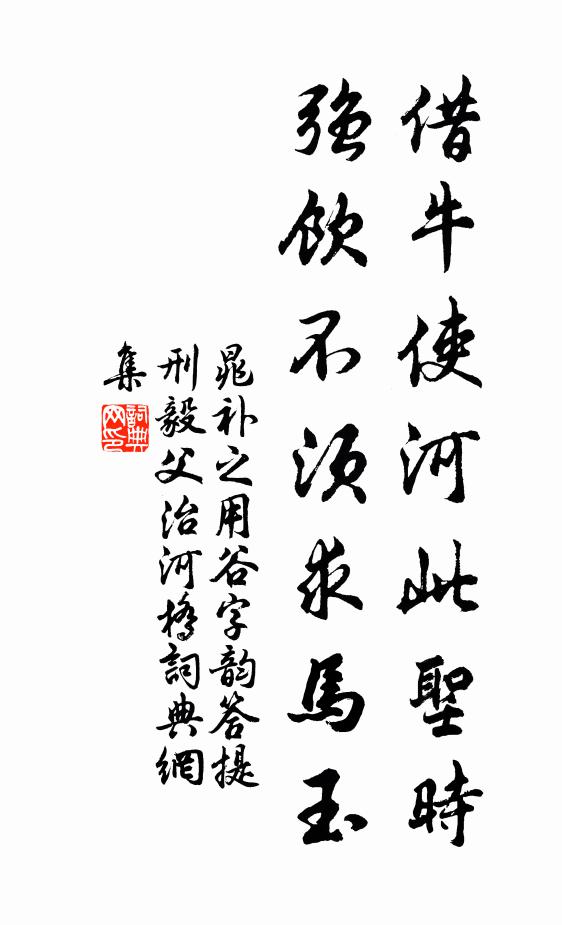 借牛使河此聖時
強飲不須求馬玉
晁补之用谷字韵答提
刑毅父治河橋詞典網
集
詞典网印